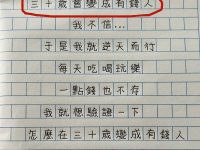 三十歲會變成有錢人
我不信...
于是我就逆天而行
每天吃喝玩樂
一點錢也不存
我就想驗證一下
怎麼在三十歲變成有錢人